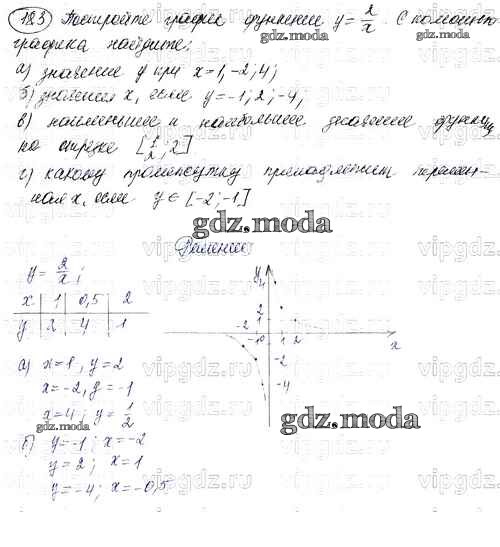 183 Постройте график функции y = 2/x. С помощью
графика найдите:
а) значение y при x=1, -2; 4;
б) значения x, если y=-1; 2; -4,
в) наименьшее и наибольшее значение функции
на отрезке [1/2; 2]
г) какому промежутку принадлежит перемен-
ная x, если y∈[-2; -1]
gdz.moda
Решение:
y = 2/x;
x | 1 | 0,5 | 2
y | 2 | 4 | 1
а) x=1, y=2
x=-2, y=-1
x=4; y=1/2
б) y=-1; x=-2
y=2; x=1
y=-4; x=-0,5
y
4
2
1
-2
-1
0
1
2
x
-2
-4
gdz.moda
vipgdz.ru